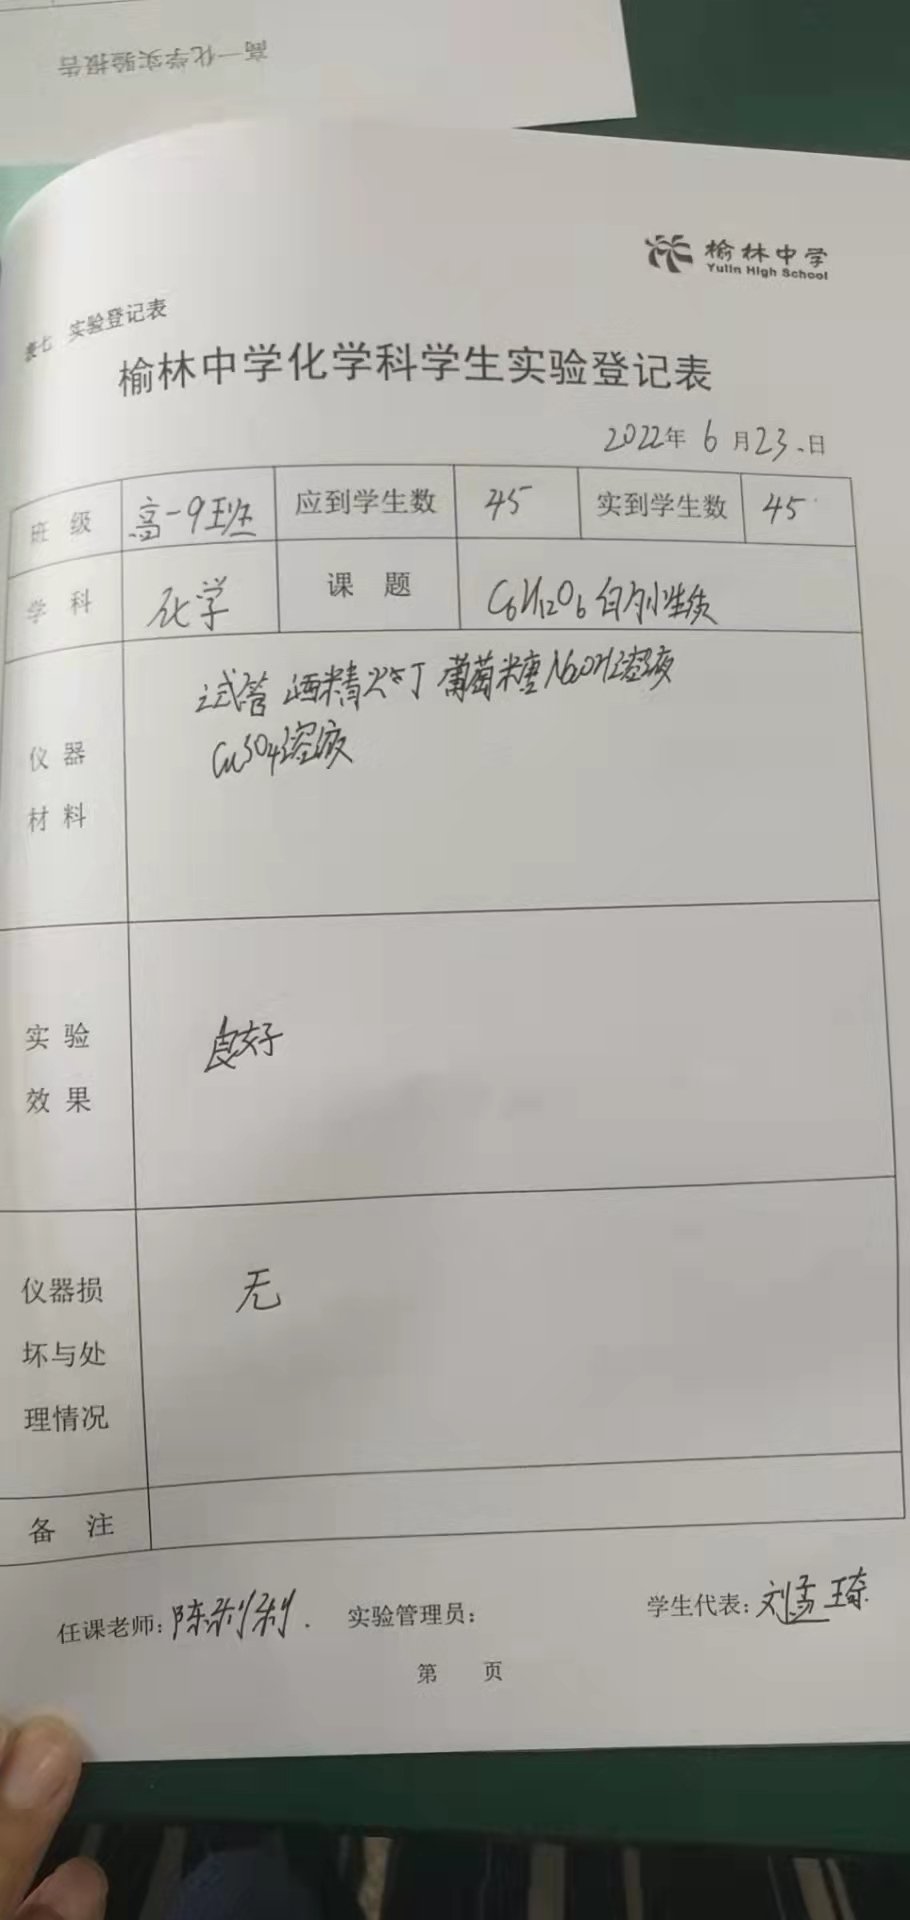 高一化学实验报告
榆林中学
Yulin High School
表七 实验登记表
榆林中学化学科学生实验登记表
2022年 6 月 23 日
班 级 高一9班 应到学生数 45 实到学生数 45
学 科 化学 课 题 C6H12O6的性质
仪 器
材 料
试管 酒精灯 葡萄糖 NaOH溶液
CuSO4溶液
实 验
效 果
良好
仪器损
坏与处
理情况
无
备 注
任课老师: 陈利利 实验管理员: 学生代表: 刘孟琦
第 页